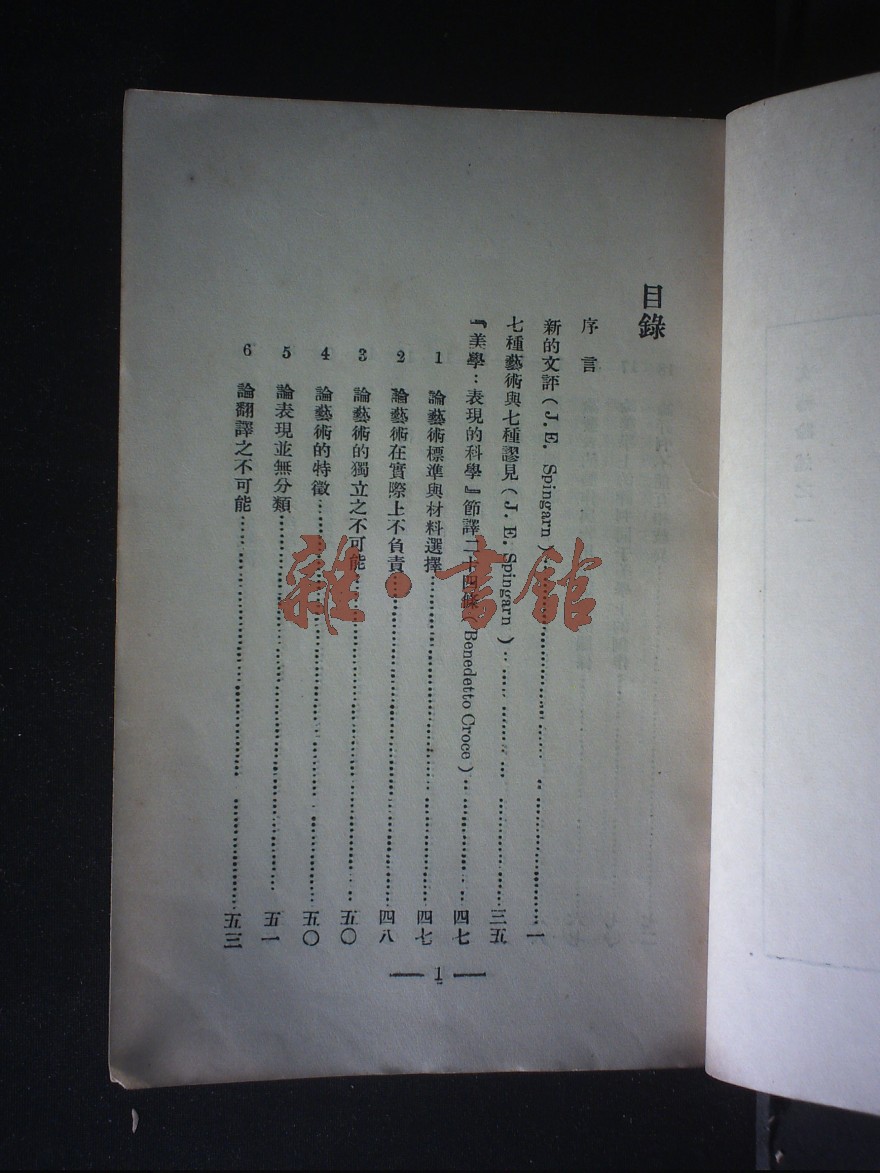 目錄
序言
新的文評(J. E. Spingarn)……一
七種藝術與七種謬見(J. E. Spingarn)……三五
『美學：表現的科學』節譯二十四條(Benedetto Croce)……四七
1 論藝術標準與材料選擇……四七
2 論藝術在實際上不負責……四八
3 論藝術的獨立之不可能……五〇
4 論藝術的特徵……五〇
5 論表現並無分類……五一
6 論翻譯之不可能……五三
— 1 —
雜·書館